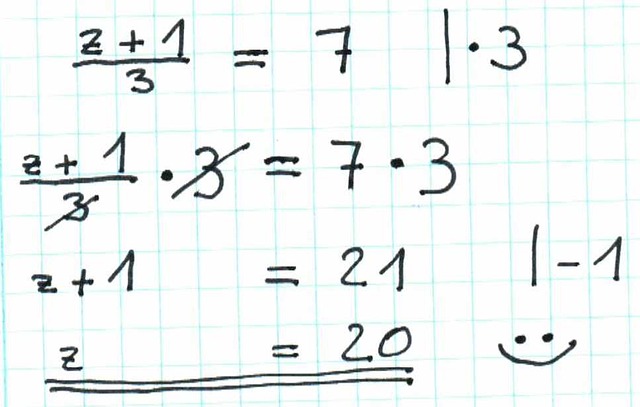 z + 1 / 3 = 7 | · 3
z + 1 / 3 · 3 = 7 · 3
z + 1 = 21 | - 1
z = 20